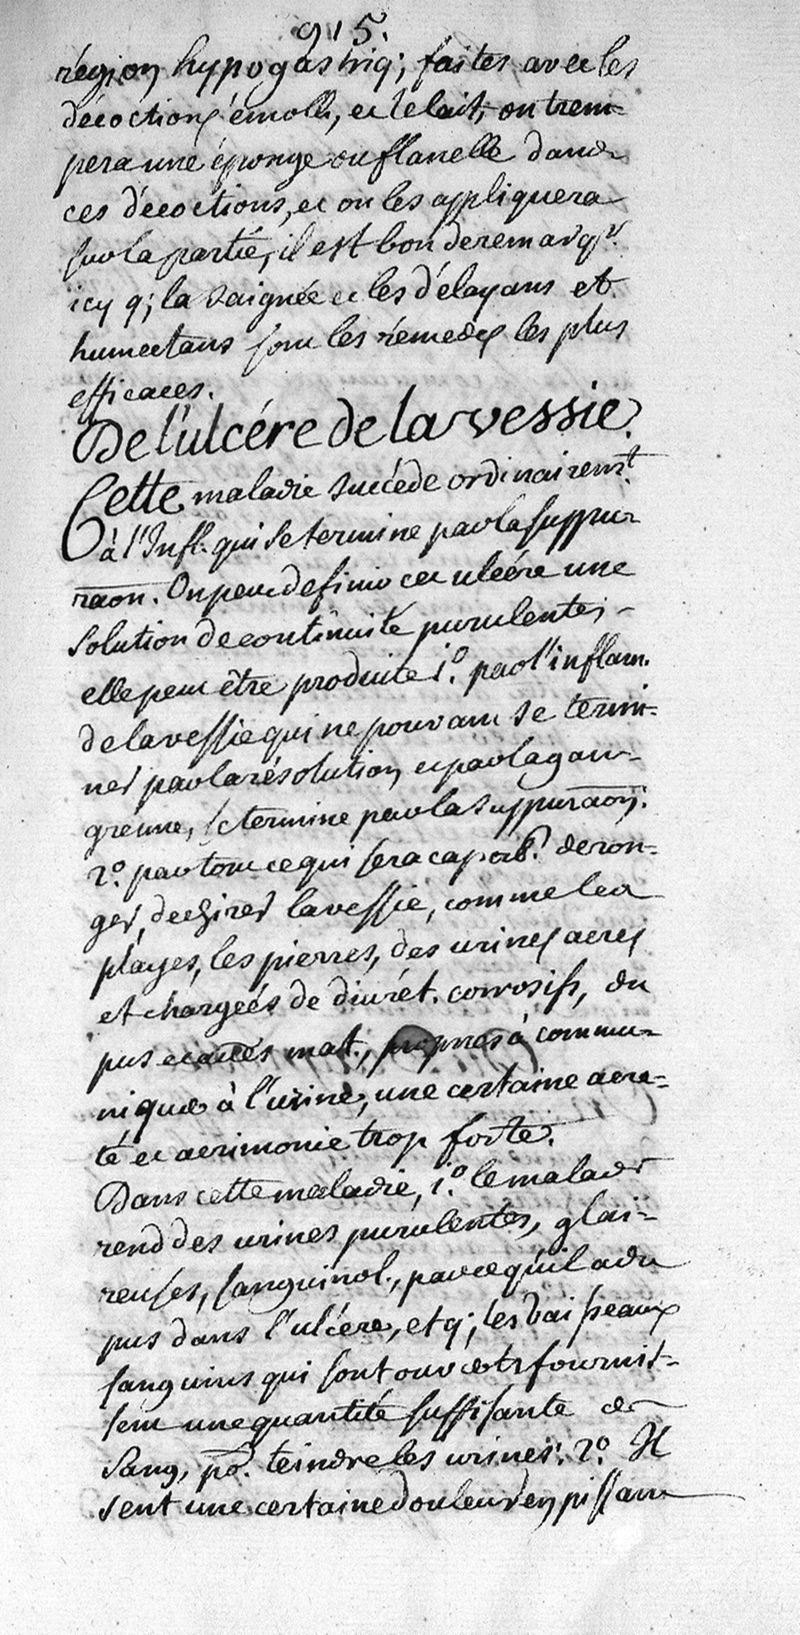 915.
région hypogastriq; faites avec les
décoctions émoll., et le lait, on trem-
pera une éponge ou flanelle dans
ces décoctions, et on les appliquera
sur la partie, il est bon de remarqr.
icy q; la saignée et les délayans et
humectans sont les rémedes les plus
efficaces.
De l'ulcére de la vessie.
Cette maladie succéde ordinairemt.
à l'Infl. qui se termine par la suppu-
raon. On peut definir cet ulcére une
solution de continuité purulente;
elle peut être produite 1o. par l'inflam.
de la vessie qui ne pouvant se termi-
ner par la résolution et par la gan-
grenne, se termine par la suppuraon.
2o. par tout ce qui sera capab. de ron-
ger, dechirer la vessie, comme les
playes, les pierres, des urines acres
et chargées de diurét. corrosifs, du
pus et autres mat., propres à commu-
niquer à l'urine, une certaine acre-
té et acrimonie trop forte.
Dans cette maladie, 1o. le malade
rend des urines purulentes, glai-
reuses, sanguinol., parce qu'il a du
pus dans l'ulcére, et q; les vaisseaux
sanguins qui sont ouverts fournis-
sent une quantité suffisante de
sang, pr. teindre les urines. 2o. Il
sent une certaine douleur en pissant